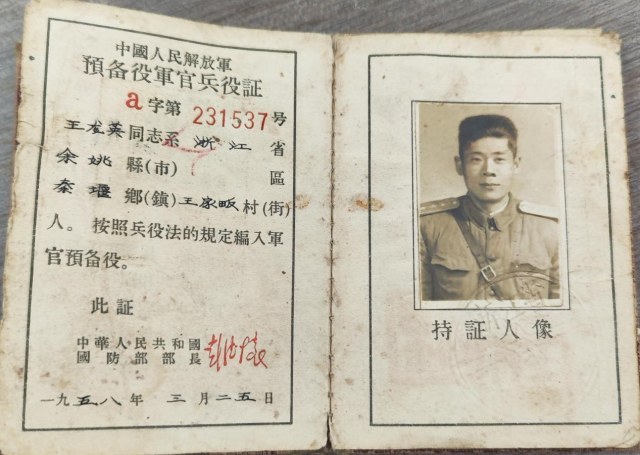 中國人民解放軍
預备役軍官兵役証
a字第 231537号
王友英同志系浙江省
余姚縣(市) 區
泰堰鄉(鎮)王家畈村(街)
人。按照兵役法的規定編入軍
官預备役。
此証
中華人民共和國
國防部部長 彭德懷
一九五八年 三月二五日
持証人像